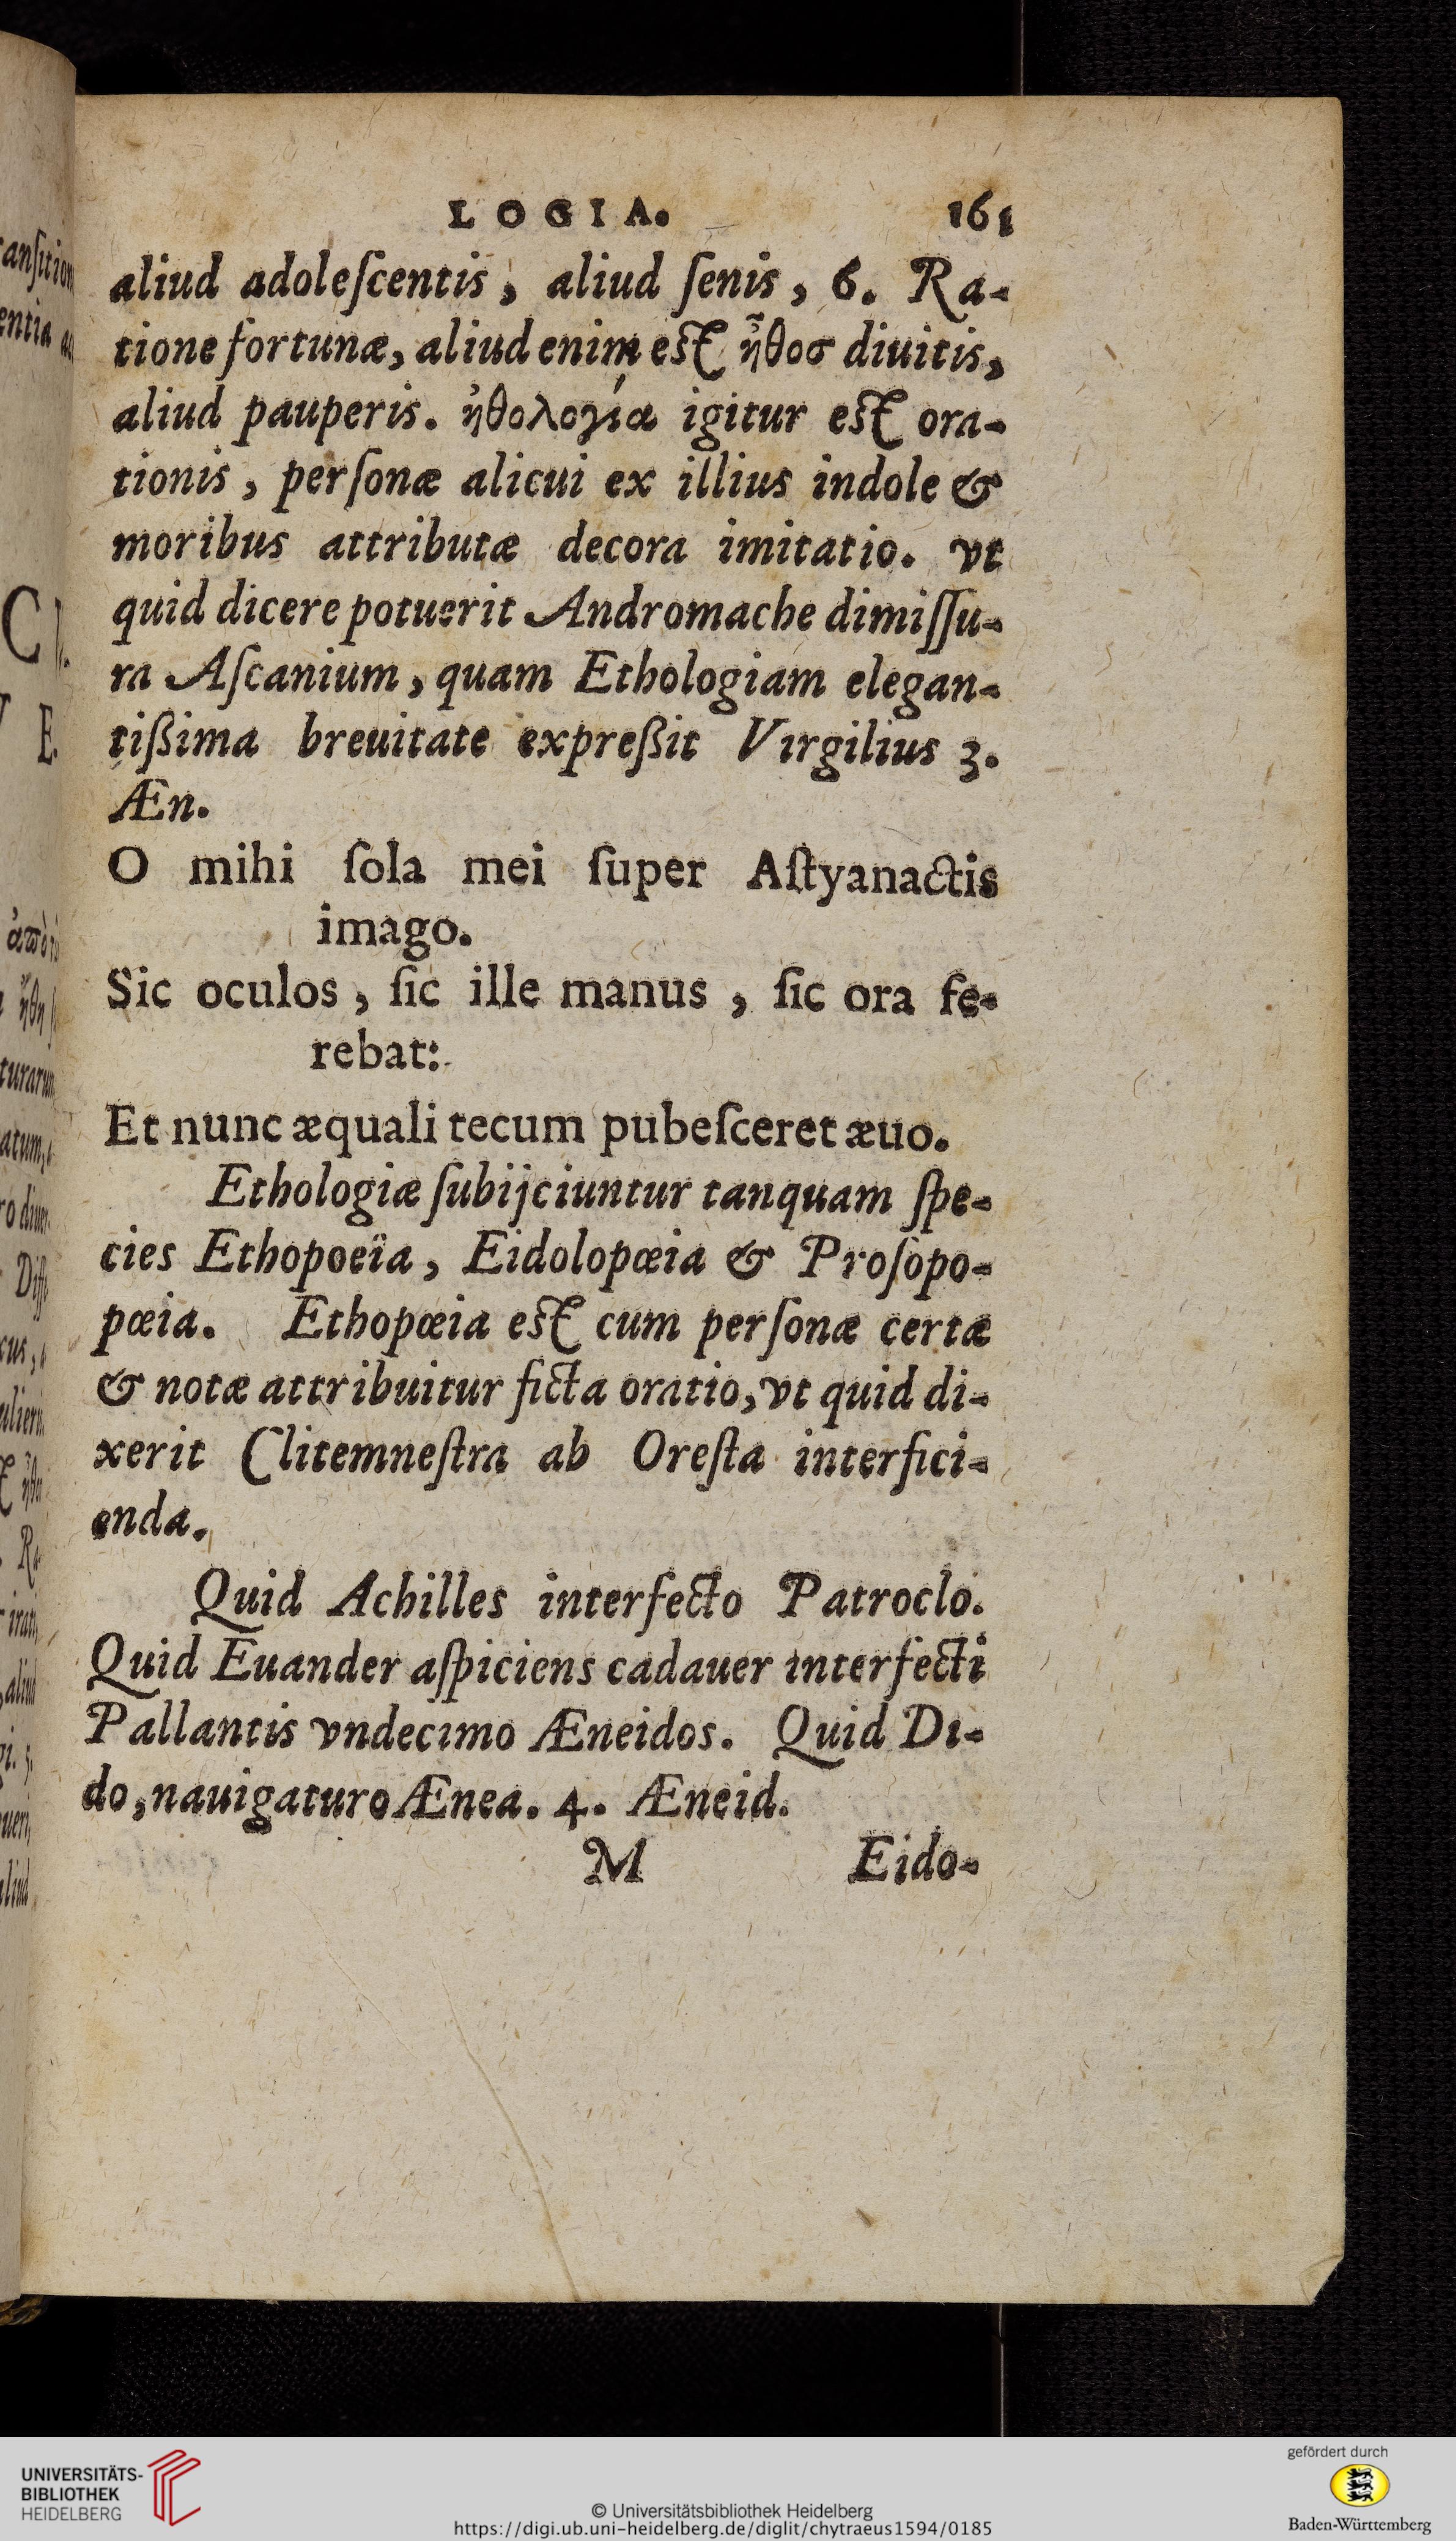 LOGIA. 161
aliud adoleſcentis, aliud ſenis, 6. Ra-
tione fortunæ, aliud enim est ἦθοσ diuitis,
aliud pauperis. ἠθολογία igitur est ora-
tionis, perſonæ alicui ex illius indole &
moribus attributæ decora imitatio. vt
quid dicere potuerit Andromache dimiſſu-
ra Aſcanium, quam Ethologiam elegan-
tißima breuitate expreßit Virgilius 3.
Æn.
O mihi ſola mei ſuper Aſtyanactis
imago.
Sic oculos, ſic ille manus, ſic ora fe-
rebat:
Et nunc æquali tecum pubeſceret æuo.
Ethologiæ ſubijciuntur tanquam ſpe-
cies Ethopoeïa, Eidolopœia & Proſopo-
pœia. Ethopœia est cum perſonæ certæ
& notæ attribuitur ficta oratio, vt quid di-
xerit Clitemneſtra ab Oreſta interfici-
enda.
Quid Achilles interfecto Patroclo.
Quid Euander aſpiciens cadauer interfecti
Pallantis vndecimo Æneidos. Quid Di-
do, nauigaturo Ænea. 4. Æneid.
M Eido-
UNIVERSITÄTS-
BIBLIOTHEK
HEIDELBERG
© Universitätsbibliothek Heidelberg
https://digi.ub.uni-heidelberg.de/diglit/chytraeus1594/0185
gefördert durch
Baden-Württemberg